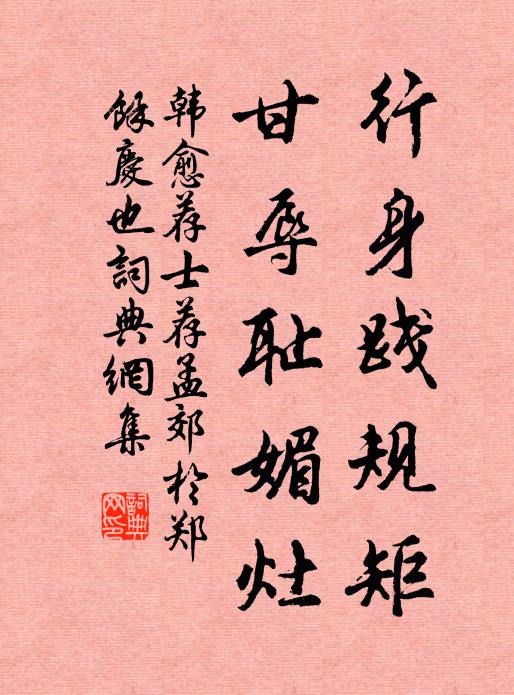 行身践规矩
甘辱耻媚灶
韩愈荐士荐孟郊於郑
馀慶也詞典網集
詞典網印